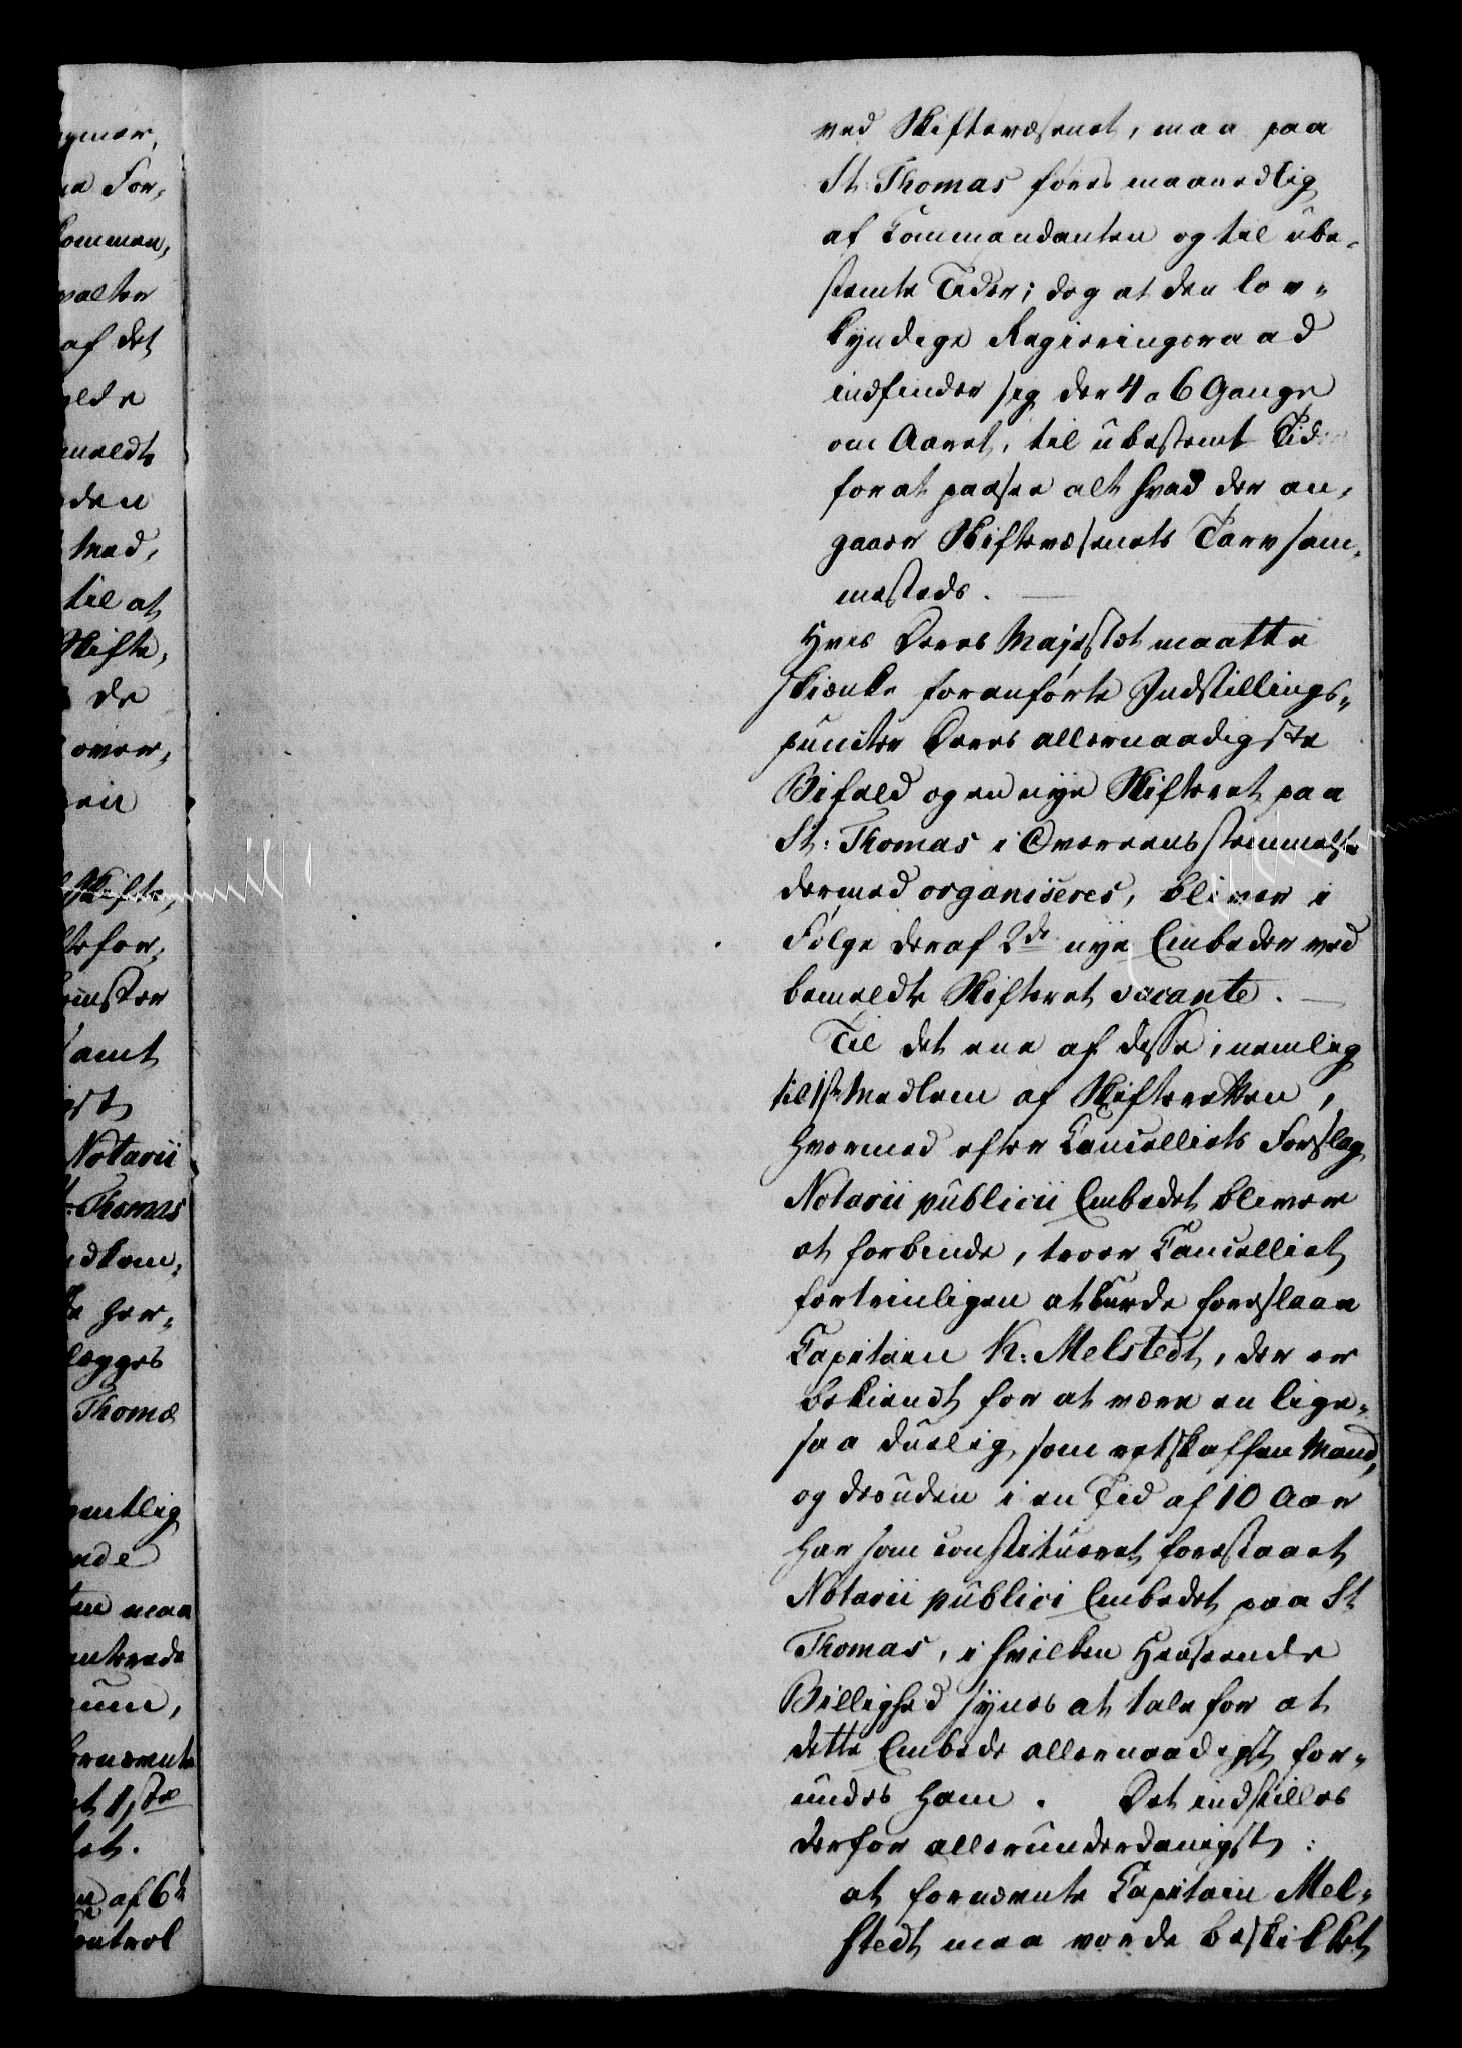 ved Skiftevæsenet, maa paa
St. Thomas føres maanedlig
af Commandanten og til ube-
stemte Tider; dog at den lov-
kyndige Regieringsraad
indfinder sig der 4 a 6 Gange
om Aaret, til ubestemt Tider
for at paasee alt hvad der an-
gaaer Skiftevæsenets Tarv sam-
mesteds.
Hvis Deres Majestæt maatte
skienke foranførte Indstillings-
puncter Deres allernaadigste
Bifald og en nye Skifteret paa
St: Thomas i Overeensstemmelse
dermed organiseres, bliver i
Følge deraf 2de nye Embeder ved
bemeldte Skifteret vacante.
Til det ene af disse, nemlig
til 1ste Medlem af Skifteretten,
hvormed efter Cancelliets Forslag
Notarii publicii Embedet bliver
at forbinde, troer Cancelliet
fortrinligen at burde foreslaae
Capitain K: Melstedt, der er
bekiendt for at være en lige-
saa duelig som retskaffen Mand,
og desuden i en Tid af 10 Aar
har som constitueret forestaaet
Notarii publici Embedet paa St
Thomas, i hvilken Henseende
Billighed synes at tale for at
dette Embede allernaadigst for-
undes ham. Det indstilles
derfor allerunderdanigst:
at fornævnte Capitain Mel-
stedt maa vorde beskikket